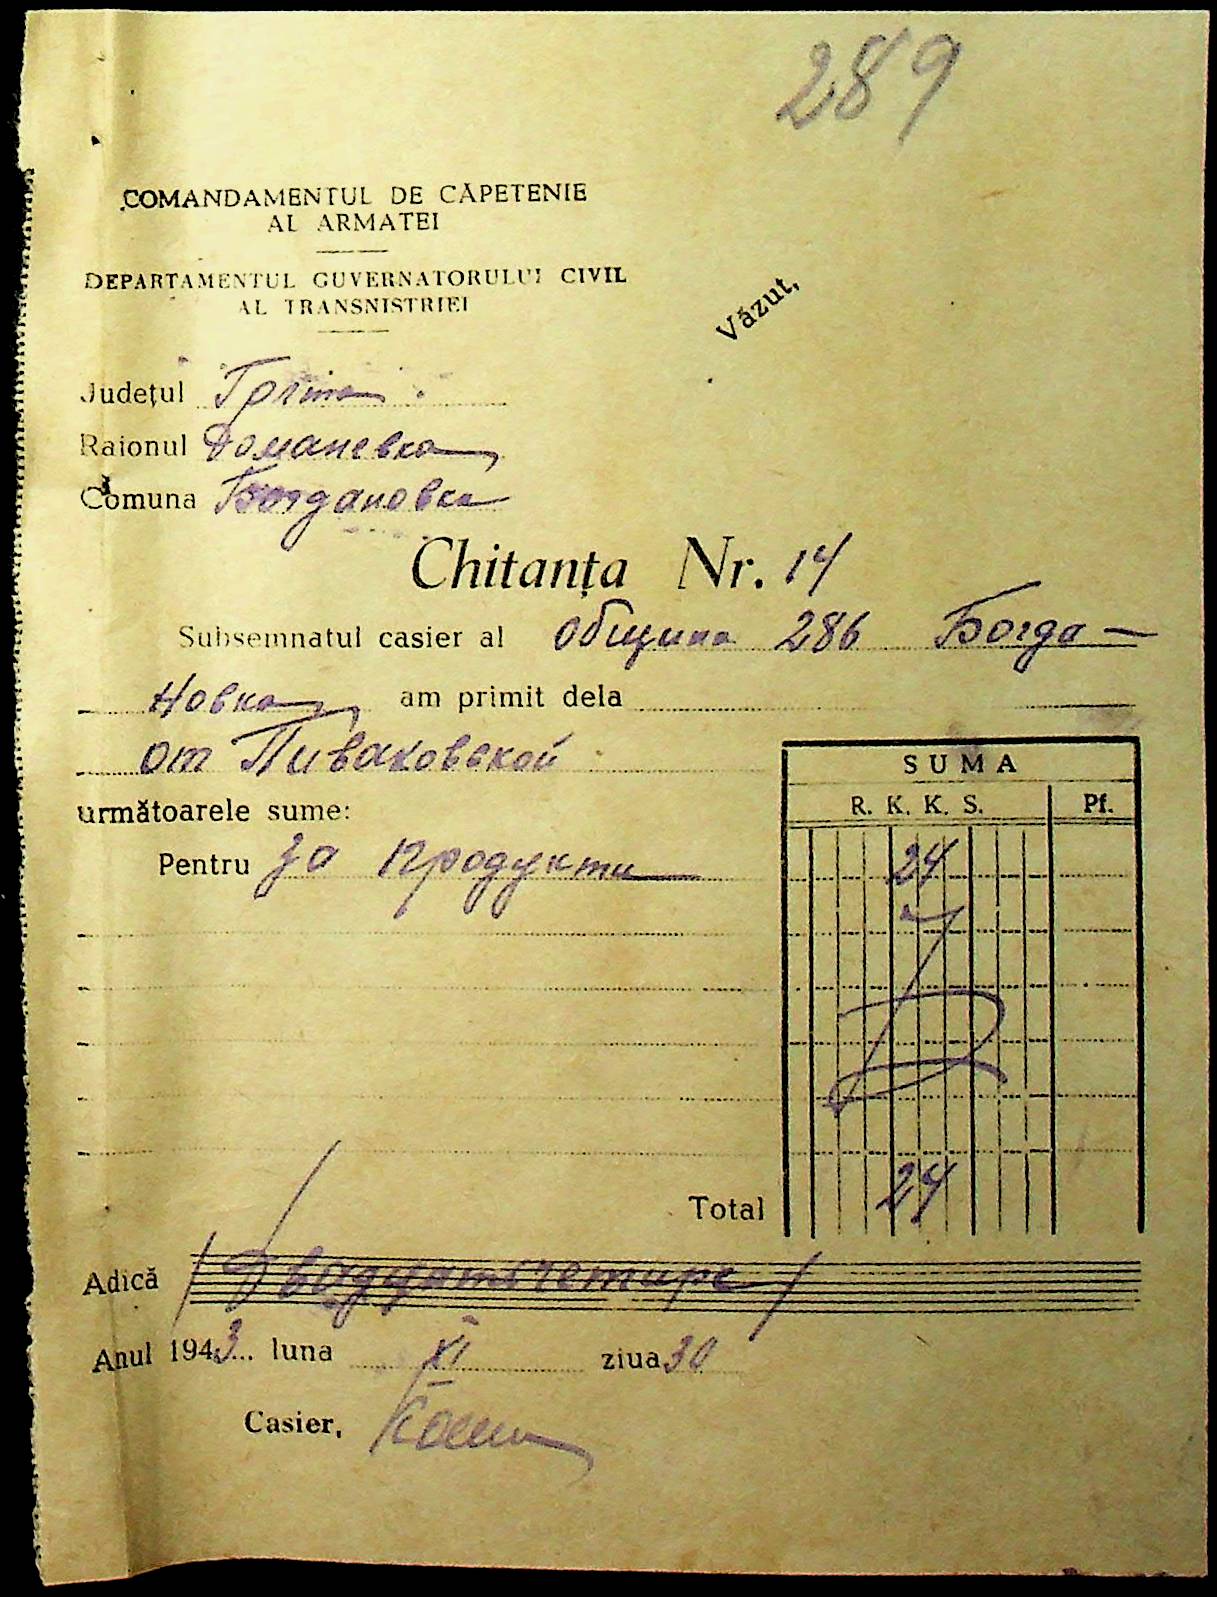 289
COMANDAMENTUL DE CĂPETENIE
AL ARMATEI
DEPARTAMENTUL GUVERNATORULUI CIVIL
AL TRANSNISTRIEI
Văzut,
Județul Голта
Raionul Доманевка
Comuna Богдановка
Chitanța Nr. 14
Subsemnatul casier al община 286 Богда-
новка am primit dela
от Пиваковской
următoarele sume:
SUMA
R. K. K. S. Pf.
Pentru за продукти 24
Total 24
Adică Двадцатьчетире
Anul 1943 luna XI ziua 30
Casier,